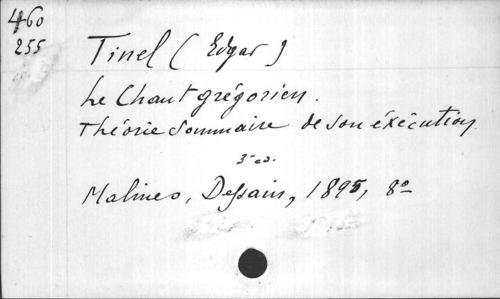 460
255
Tinel (Edgar)
Le Chant grégorien.
Théorie sommaire de son éxécution
3e éd.
Malines, Dessain, 1895, 8o